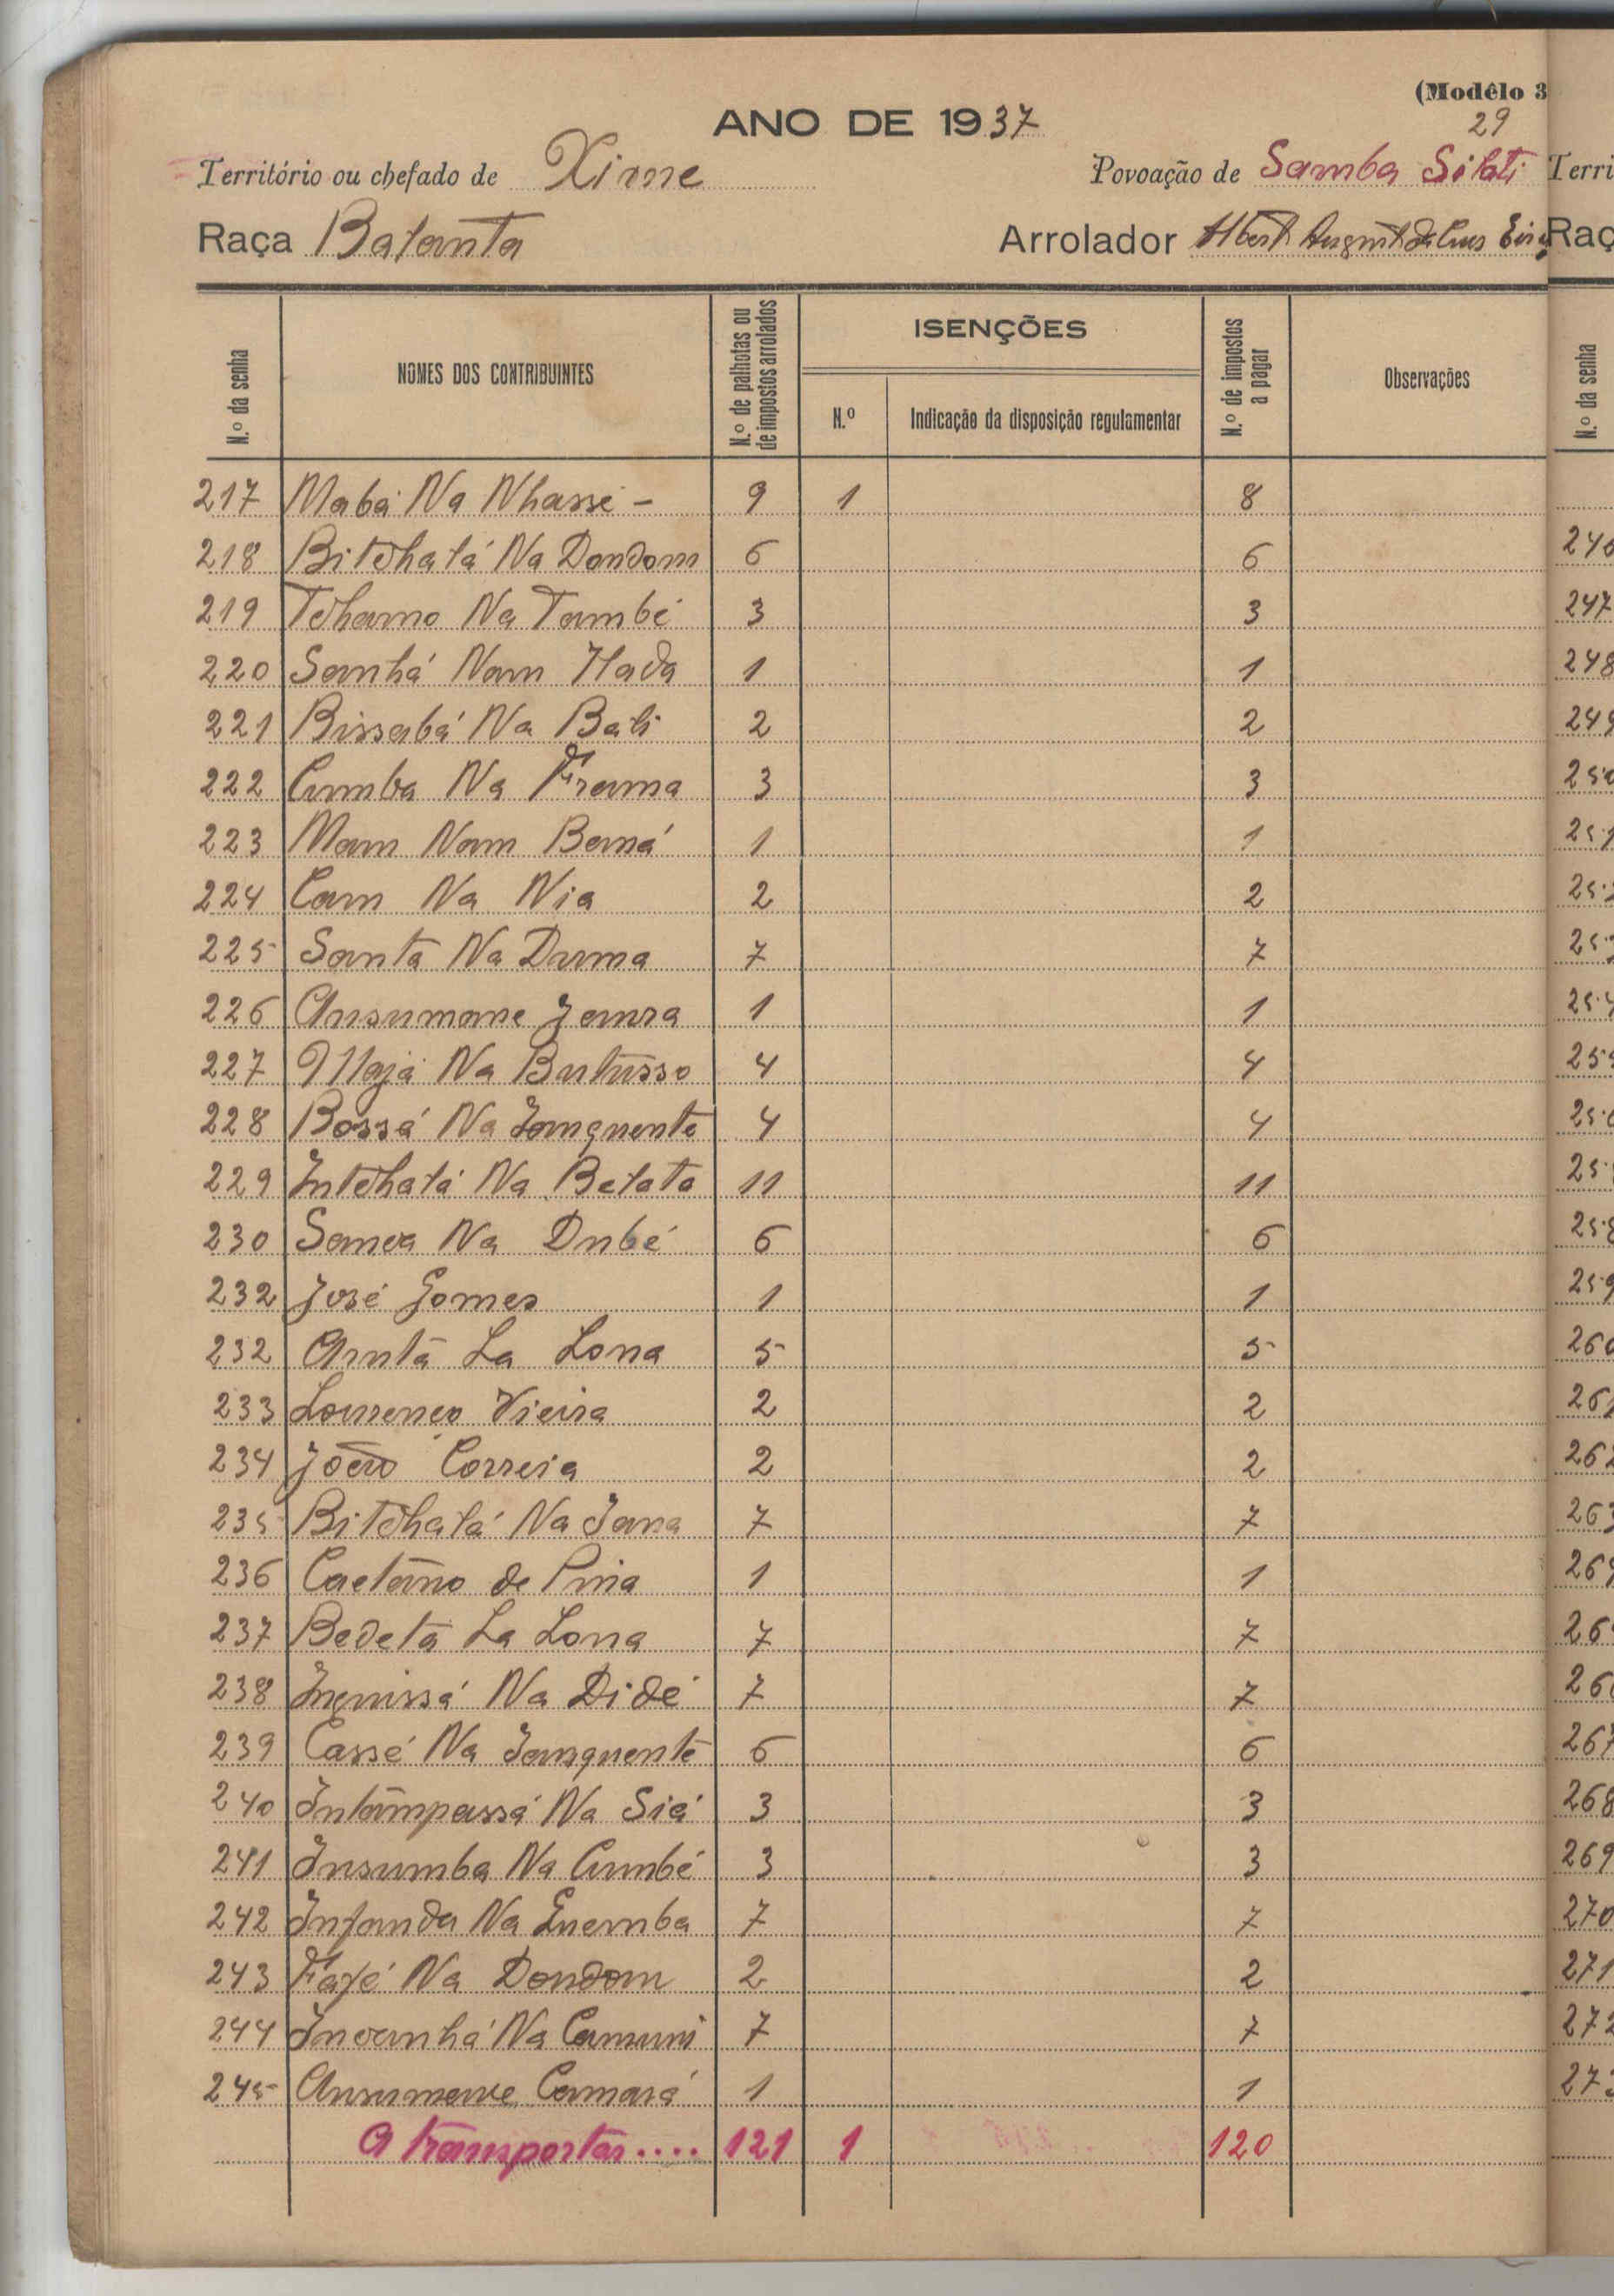 (Modêlo 3
ANO DE 1937
29
Território ou chefado de Xime
Povoação de Samba Silati
Raça Balanta
Arrolador Alberto Augusto da Cruz
N.º da senha
NOMES DOS CONTRIBUINTES
N.º de palhotas ou de impostos arrolados
ISENÇÕES
N.º
Indicação da disposição regulamentar
N.º de impostos a pagar
Observações
217 Mabá Na Nhassé - 9 1 8
218 Bitchatá Na Dondom 6 6
219 Tchamo Na També 3 3
220 Sanhá Nam Hada 1 1
221 Bissabá Na Bali 2 2
222 Cumba Na Frama 3 3
223 Mam Nam Bamá 1 1
224 Cam Na Nia 2 2
225 Santa Na Duma 7 7
226 Ansumane 1 1
227 Na Butusso 4 4
228 Bossá Na Janquente 4 4
229 Intchatá Na Betata 11 11
230 Sanca Na Dubé 6 6
232 José Gomes 1 1
232 Aruta La Lona 5 5
233 Lourenço Vieira 2 2
234 João Correia 2 2
235 Bitchatá Na Jana 7 7
236 Caetano de Pina 1 1
237 Bedeta La Lona 7 7
238 Na Didé 7 7
239 Cassé Na Janquente 6 6
240 Intâmpassá Na Siá 3 3
241 Insumba Na Cumbé 3 3
242 Infanda Na Guemba 7 7
243 Fafé Na Dondom 2 2
244 Incanhá Na Camuni 7 7
245 Ansumane Camará 1 1
A transportar.... 121 1 120
Terri
Raç
N.º da senha
246
247
248
249
250
251
252
253
254
255
256
257
258
259
260
261
262
263
264
265
266
267
268
269
270
271
272
273